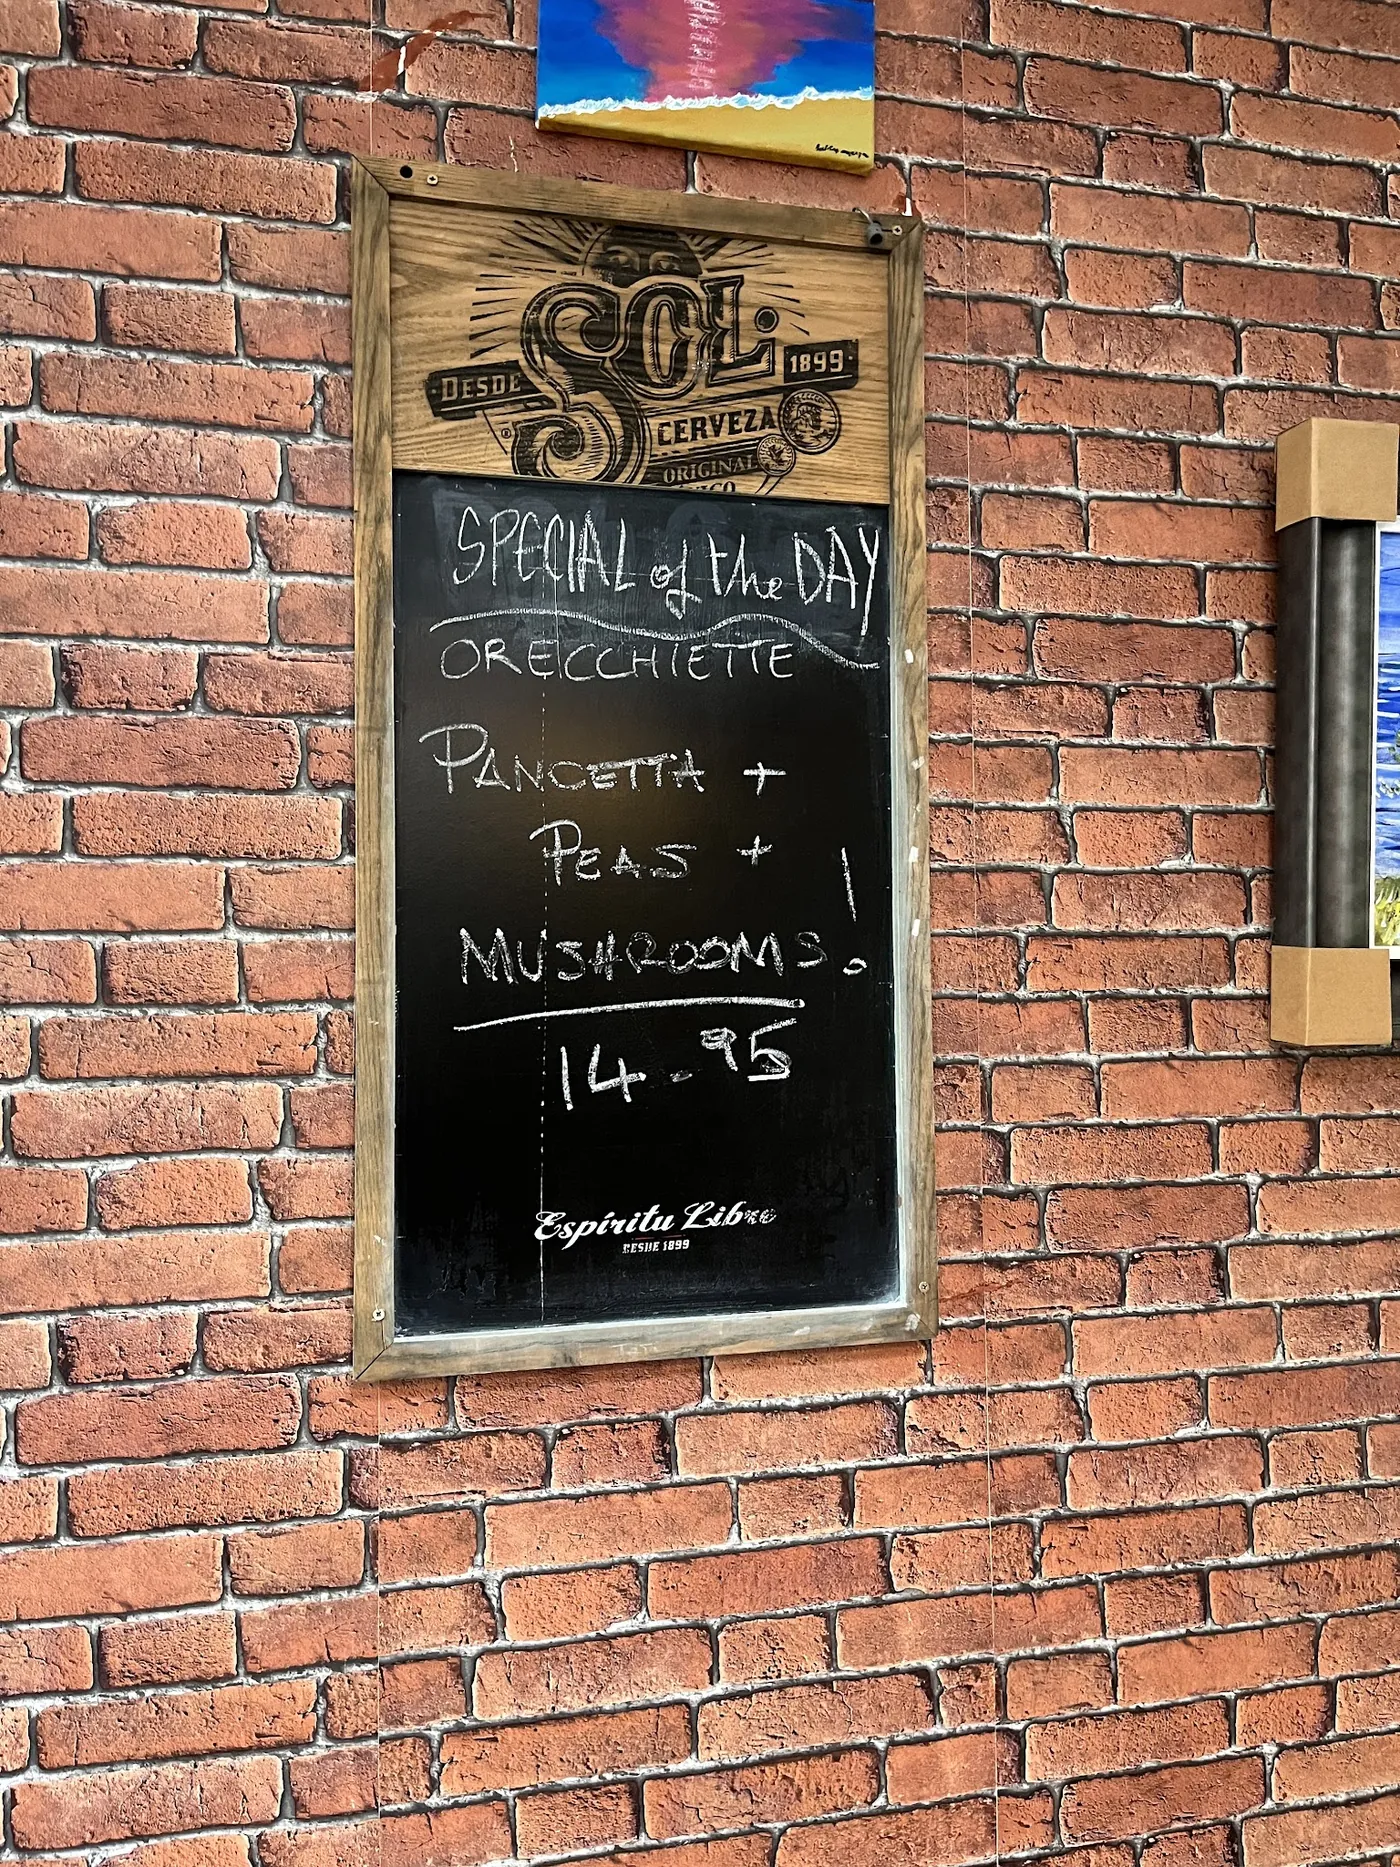 SOL.
DESDE 1899
CERVEZA
ORIGINAL
SPECIAL of the DAY
ORECCHIETTE
PANCETTA +
PEAS +
MUSHROOMS!
14.95
Espíritu Libre
DESDE 1899